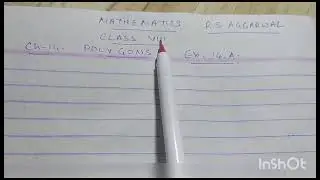 MATHEMATICS R S AGGARWAL
CLASS VIII
Ch-14. POLYGONS Ex. 14.A.
InShOt